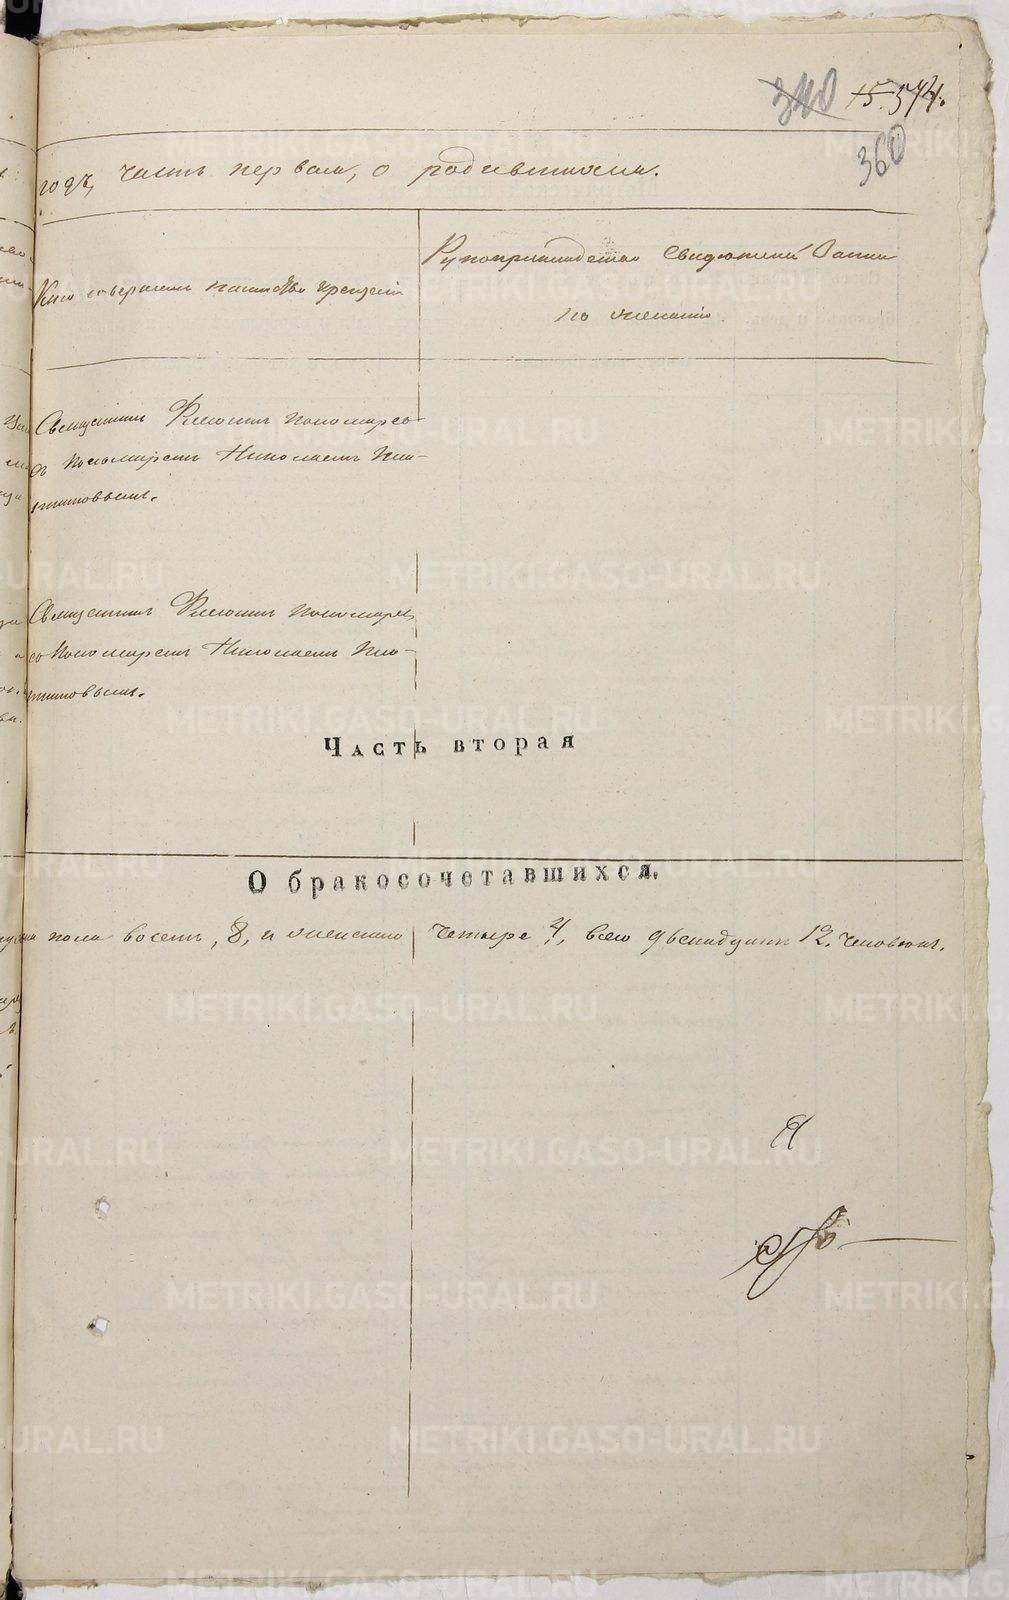 340 15. 544.
360
годъ, часть первая, о родившихся.
Кто совершалъ таинство крещенія
Рукоприкладство свидетелей записи
по желанію
Священникъ Филиппъ Пономаревъ
съ пономаремъ Николаемъ
Священникъ Филиппъ Пономаревъ
со пономаремъ Николаемъ
Часть вторая
О бракосочетавшихся.
пола восемь, 8, и женскаго четыре 4, всего двенадцать 12. человекъ.
METRIKI.GASO-URAL.RU